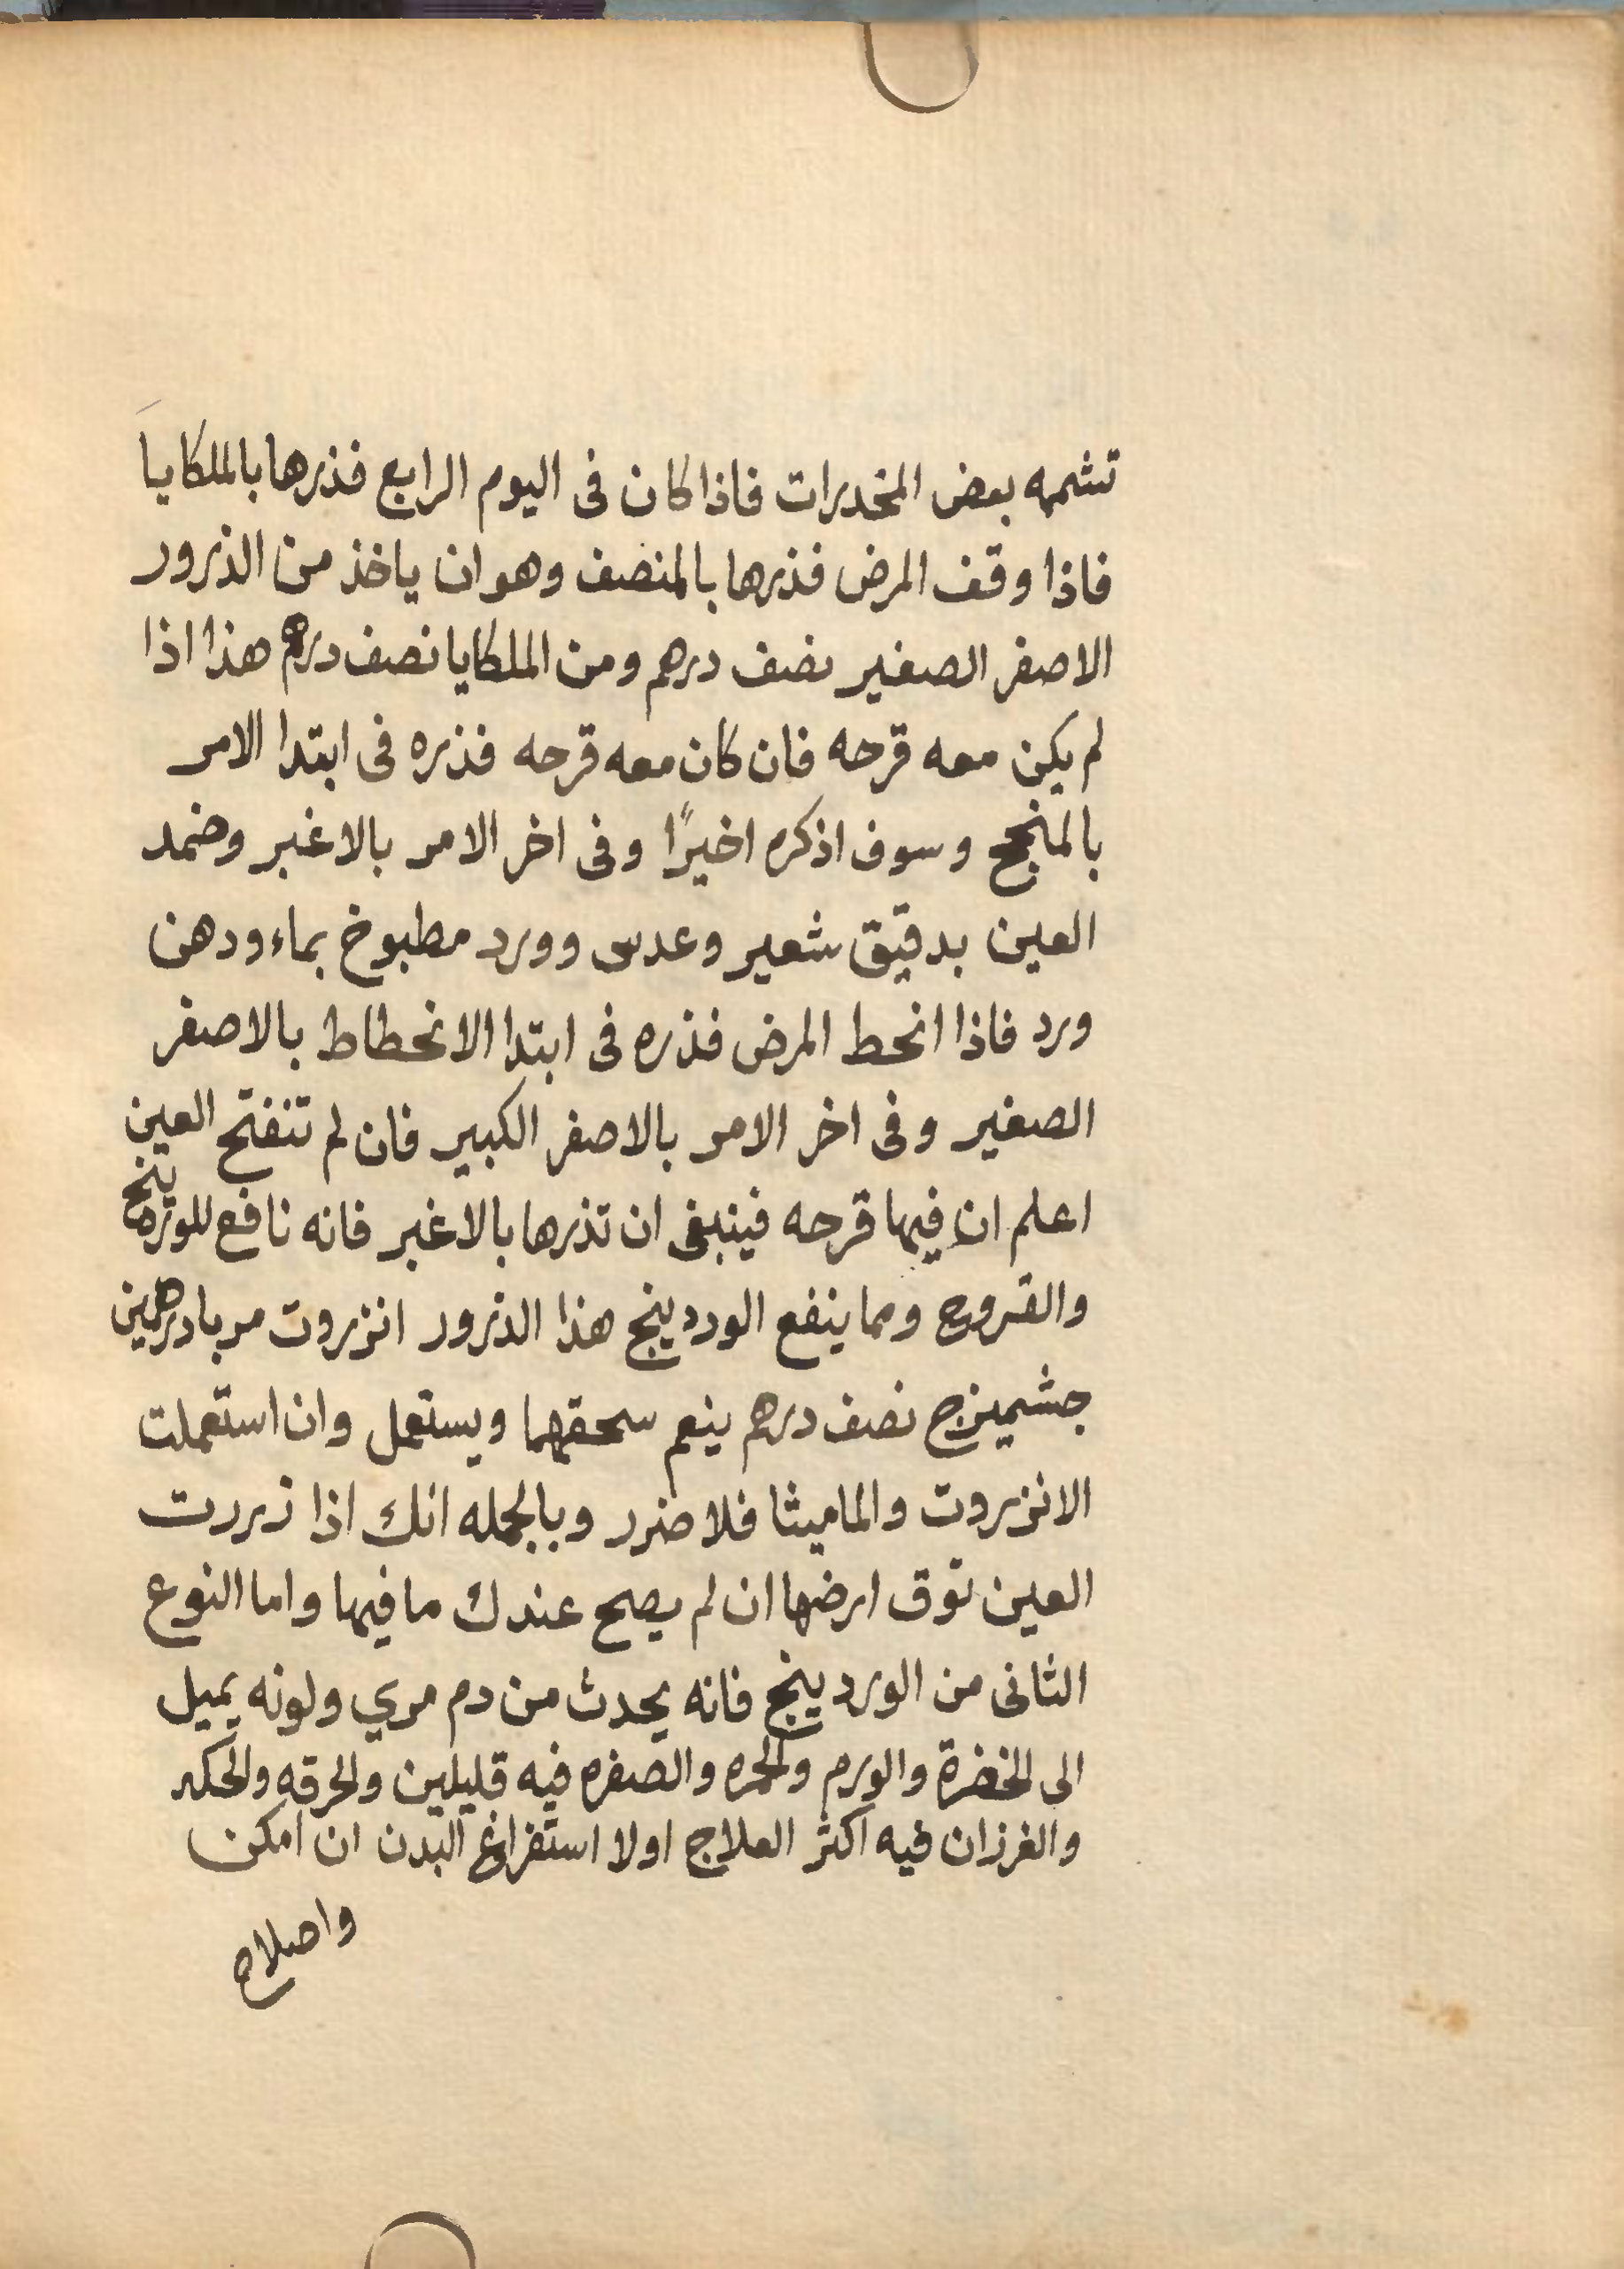 تشمه بعض المخدرات فاذا كان فى اليوم الرابع فذرها بالملكايا
فاذا وقف المرض فذرها بالمنصف وهو ان ياخذ من الذرور
الاصفر الصغير نصف درهم ومن الملكايا نصف درهم هذا اذا
لم يكن معه قرحه فان كان معه قرحه فذره فى ابتدا الامر
بالمنجح وسوف اذكره اخيرًا وفى اخر الامر بالاغبر وضمد
العين بدقيق شعير وعدس وورد مطبوخ بماء ودهن
ورد فاذا انحط المرض فذره فى ابتدا الانحطاط بالاصفر
الصغير وفى اخر الامر بالاصفر الكبير فان لم تنفتح العين
اعلم ان فيها قرحه فينبغى ان تذرها بالاغبر فانه نافع للوردينج
والقروح ومما ينفع الوردينج هذا الذرور انزروت مربا درهمين
جشميزج نصف درهم ينعم سحقهما ويستعمل وان استعملت
الانزروت والماميثا فلا ضرر وبالجمله انك اذا زررت
العين توق ارضها ان لم يصح عندك ما فيها واما النوع
الثانى من الوردينج فانه يحدث من دم مري ولونه يميل
الى الخضرة والورم والحمره والصفره فيه قليلين والحرقه والحكه
والغرزان فيه اكثر العلاج اولا استفراغ البدن ان امكن
واصلاح